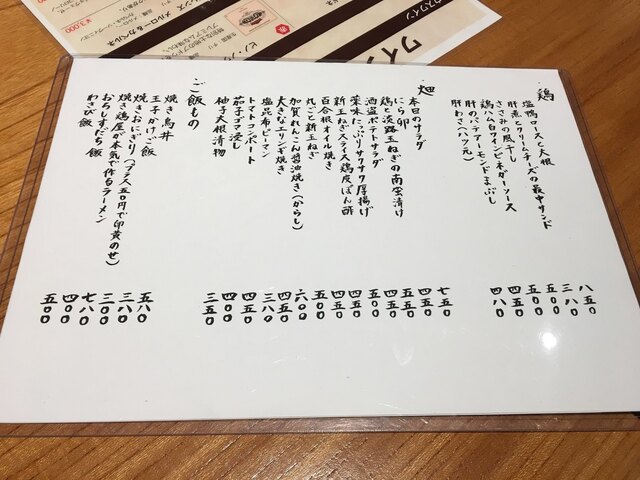 鶏
塩鴨ロースと大根 八五〇
肝煮とクリームチーズの最中サンド 三八〇
ささみの風干し 五〇〇
鶏ハム白ワインビネガーソース 五五〇
肝のパテアーモンドまぶし 四五〇
肝わさ(ハツ元) 四八〇
畑
本日のサラダ 七五〇
にら卵 四五〇
鶏と淡路玉ねぎの南蛮漬け 五五〇
酒盗ポテトサラダ 四五〇
薬味たっぷりサクサク厚揚げ 五〇〇
新玉ねぎスライス鶏皮ぽん酢 四五〇
百合根オイル焼き 四五〇
丸ごと新玉ねぎ 五〇〇
加賀れんこん醤油焼き(からし) 六〇〇
大きなエリンギ焼き 四五〇
塩昆布ピーマン 三八〇
トマトコンポート 四五〇
茄子ゴマ浸し 四〇〇
柚子大根漬物 三五〇
ご飯もの
焼き鳥丼 五八〇
玉子かけご飯 三八〇
焼きおにぎり(プラス五〇円で卵黄のせ) 三〇〇
焼き鶏屋が本気で作るラーメン 七八〇
おろしすだち飯 四〇〇
わさび飯 五〇〇
ウスワイン
ワイン
¥3,000
メルロー&カベルネ